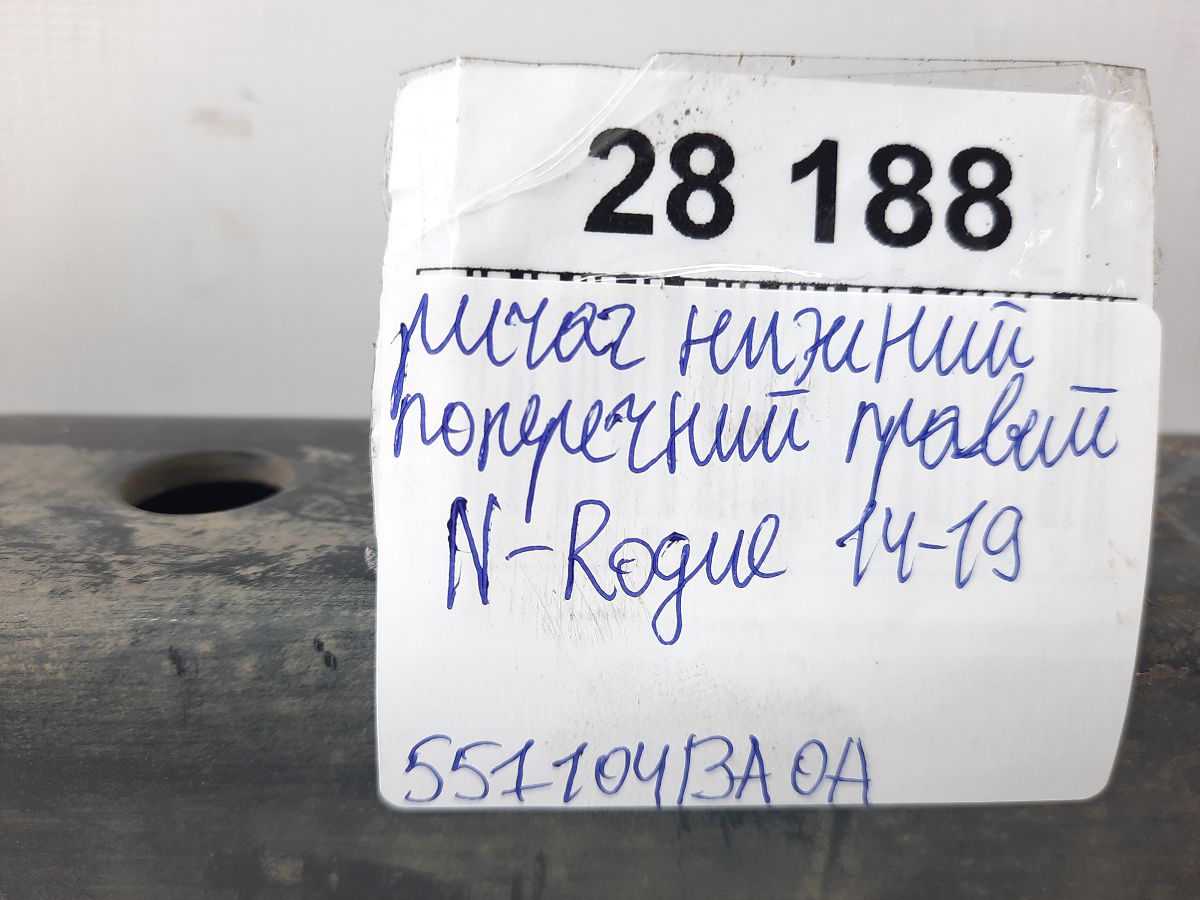 28 188
ричаг нижний
поперечний правый
N-Rogue 14-19
551104BA0A